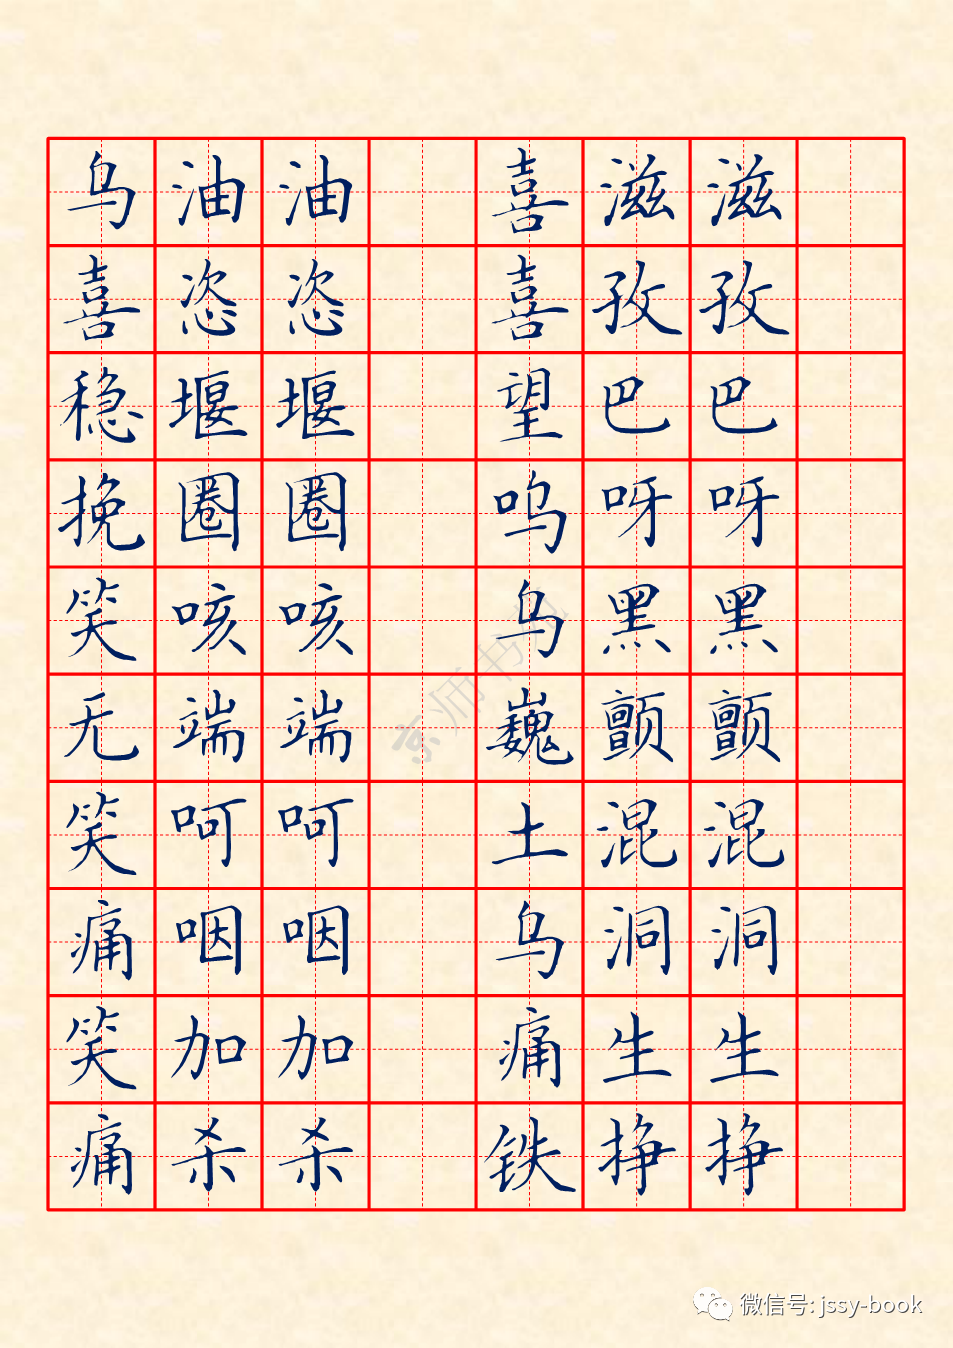 乌油油 喜滋滋
喜恣恣 喜孜孜
稳堰堰 望巴巴
挽圈圈 呜呀呀
笑咳咳 乌黑黑
无端端 巍颤颤
笑呵呵 土混混
痛咽咽 乌洞洞
笑加加 痛生生
痛杀杀 铁挣挣
京师书苑
微信号: jssy-book